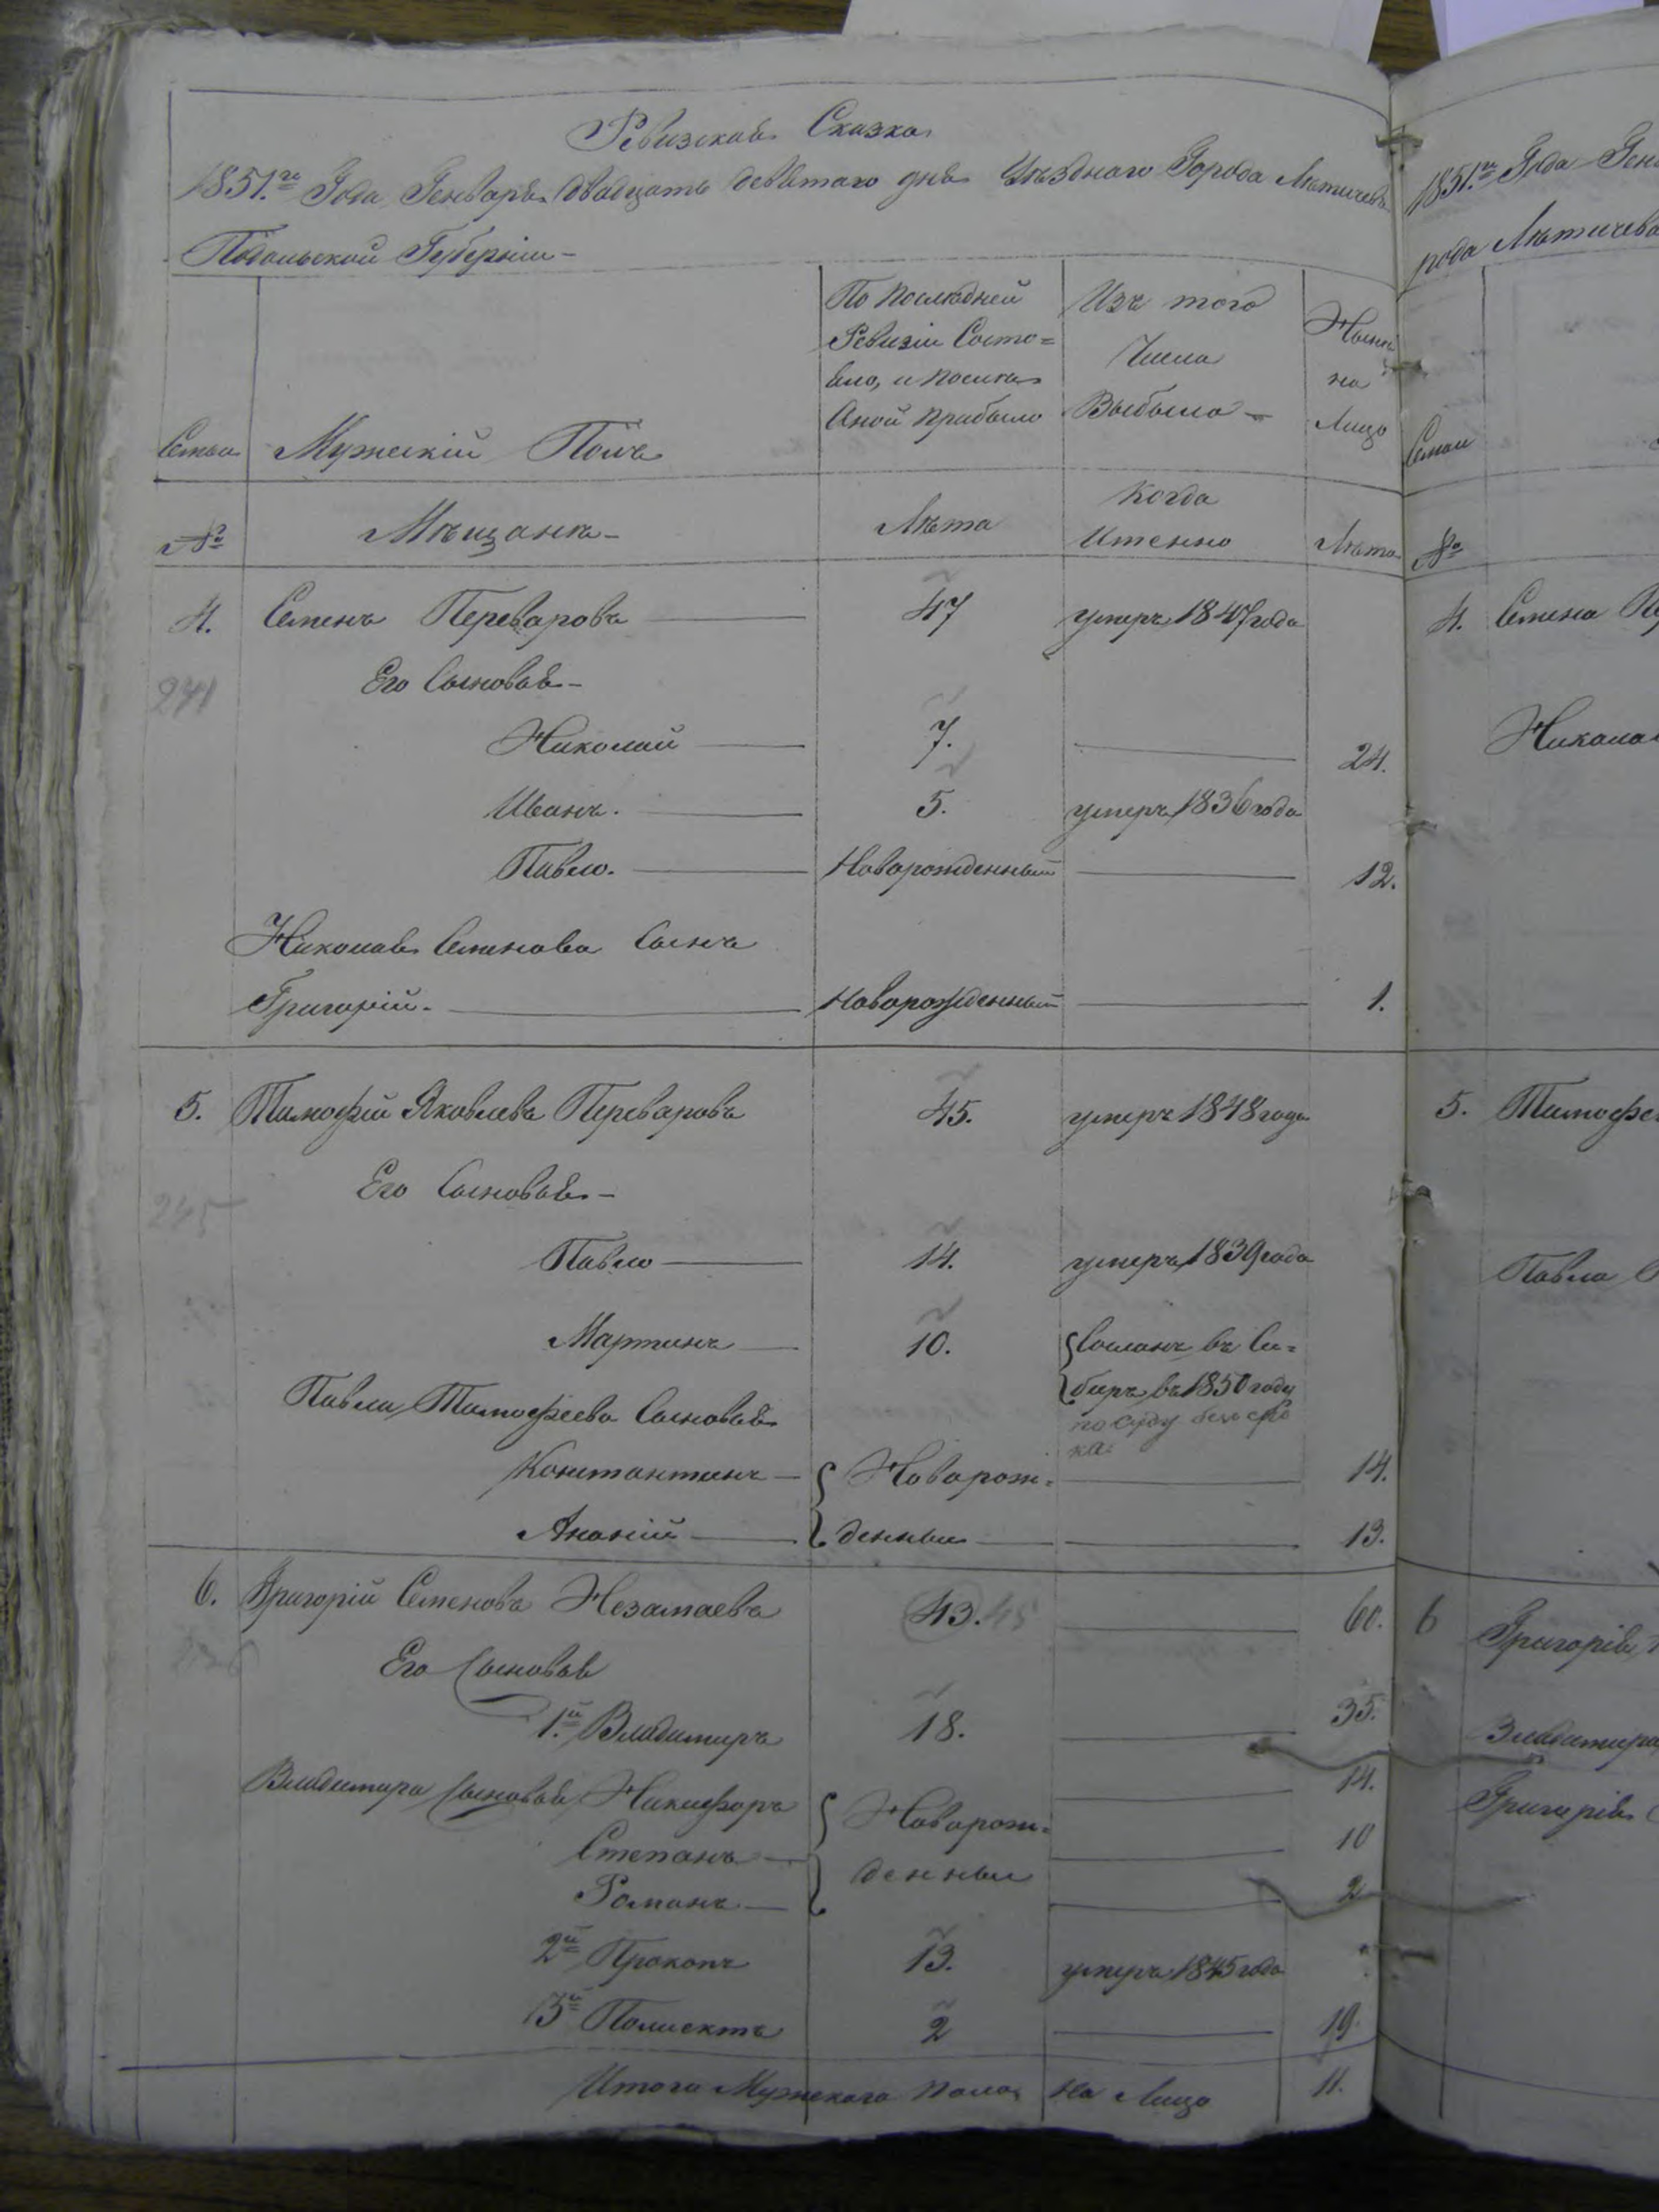 Ревизская Сказка
1851.го Года Генваря двадцать девятаго дня Уѣзднаго Города Лѣтичева
Подольской Губерніи-
Семьи
Мужескій Полъ
По последней
Ревизіи Состо=
яло, и послѣ
Оной прибыло
Изъ того
Числа
Выбыло -
Нынѣ
на
Лицо
№
Мѣщанѣ-
Лѣта
Когда
Именно
Лѣта
4. Семенъ Переваровъ 47 умеръ 1847 года
Его Сыновья-
Николай 7. 24.
Иванъ. 5. умеръ 1836 года
Павло. Новорожденный 12.
Николая Семенова Сынъ
Григорій. Новорожденный 1.
5. Тимофей Яковлевъ Переваровъ 45. умеръ 1848 года
Его Сыновья-
245
Павло 14. умеръ 1839 года
Мартинъ 10. Сосланъ въ Си=
биръ въ 1850 году
по суду безъ сро
ка
Павла Тимофеева Сыновья
Константинъ Новорож= 14.
Ананій денныи 13.
6. Григорій Семеновъ Незамаевъ 43. 45 60.
Его Сыновья
1.й Владимиръ 18. 35.
Владимира Сыновья Никифоръ Новорож= 14.
Степанъ денныи 10
Романъ 2
2й Прокопъ 13. умеръ 1845 года
3й Полиектъ 2 19.
Итого Мужескаго пола на Лицо 11.
1851.го Года Ген
рода Лѣтичева
Семьи
№
4. Семена Пе
Никола
5. Тимофе
Павла С
6 Григорія
Владимира
Григорія